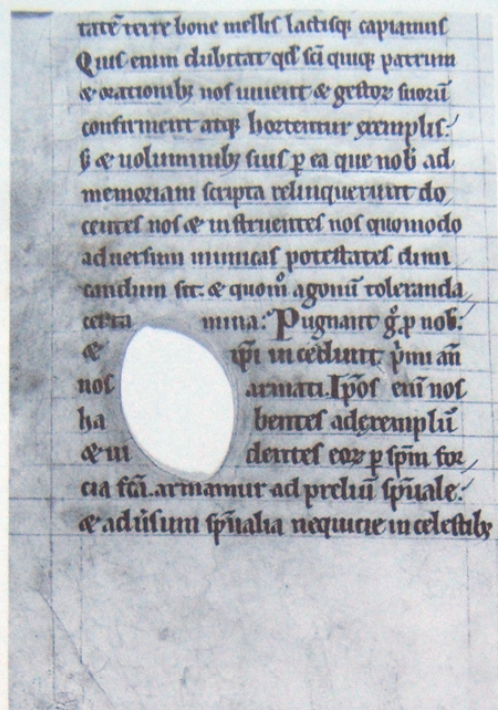 tatē terre bone mellis lactisq; capiamus
Quis enim dubitat qđ sči quiq; patrum
& orationib; nos iuuent & gestoꝝ suoꝝ
confirment atq; hortentur exemplis.
ß & uoluminib; suis ꝑ ea que nob̄ ad
memoriam scripta relinquerunt do
centes nos & instruentes nos quomodo
aduersum inimicas potestates dimi
candum sit. & quom̊ agonū toleranda
certa mina. Pugnant g̊ ꝓ nob̄.
& ip̄i incedunt p̄mi añ
nos armati. Ip̄os eni nos
ha bentes ad exemplū
& ui dentes eoꝝ ꝑ sp̄m for
cia fc̄a. armamur ad preliū sp̄uale.
& aduersum sp̄ualia nequicie in celestib;